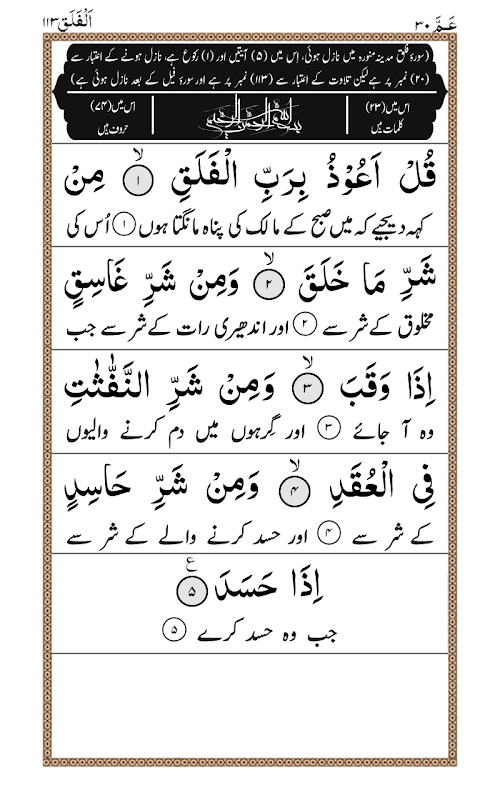 عَمَّ ۳۰
اَلْفَلَق ۱۱۳
(سورۂ فلق مدینہ منورہ میں نازل ہوئی، اِس میں (۵) آیتیں اور (۱) رکوع ہے، نازل ہونے کے اعتبار سے
(۲۰) نمبر پر ہے لیکن تلاوت کے اعتبار سے (۱۱۳) نمبر پر ہے اور سورۂ فیل کے بعد نازل ہوئی ہے)
اس میں (۲۳) کلمات ہیں
بسم الله الرحمن الرحيم
اس میں (۷۴) حروف ہیں
قُلْ اَعُوْذُ بِرَبِّ الْفَلَقِ ۙ﴿۱﴾ مِنْ
کہہ دیجیے کہ میں صبح کے مالک کی پناہ مانگتا ہوں ﴿۱﴾ اُس کی
شَرِّ مَا خَلَقَ ۙ﴿۲﴾ وَمِنْ شَرِّ غَاسِقٍ
مخلوق کے شر سے ﴿۲﴾ اور اندھیری رات کے شر سے جب
اِذَا وَقَبَ ۙ﴿۳﴾ وَمِنْ شَرِّ النَّفّٰثٰتِ
وہ آ جائے ﴿۳﴾ اور گِرہوں میں دم کرنے والیوں
فِي الْعُقَدِ ۙ﴿۴﴾ وَمِنْ شَرِّ حَاسِدٍ
کے شر سے ﴿۴﴾ اور حسد کرنے والے کے شر سے
اِذَا حَسَدَ ﴿۵﴾ ع
جب وہ حسد کرے ﴿۵﴾